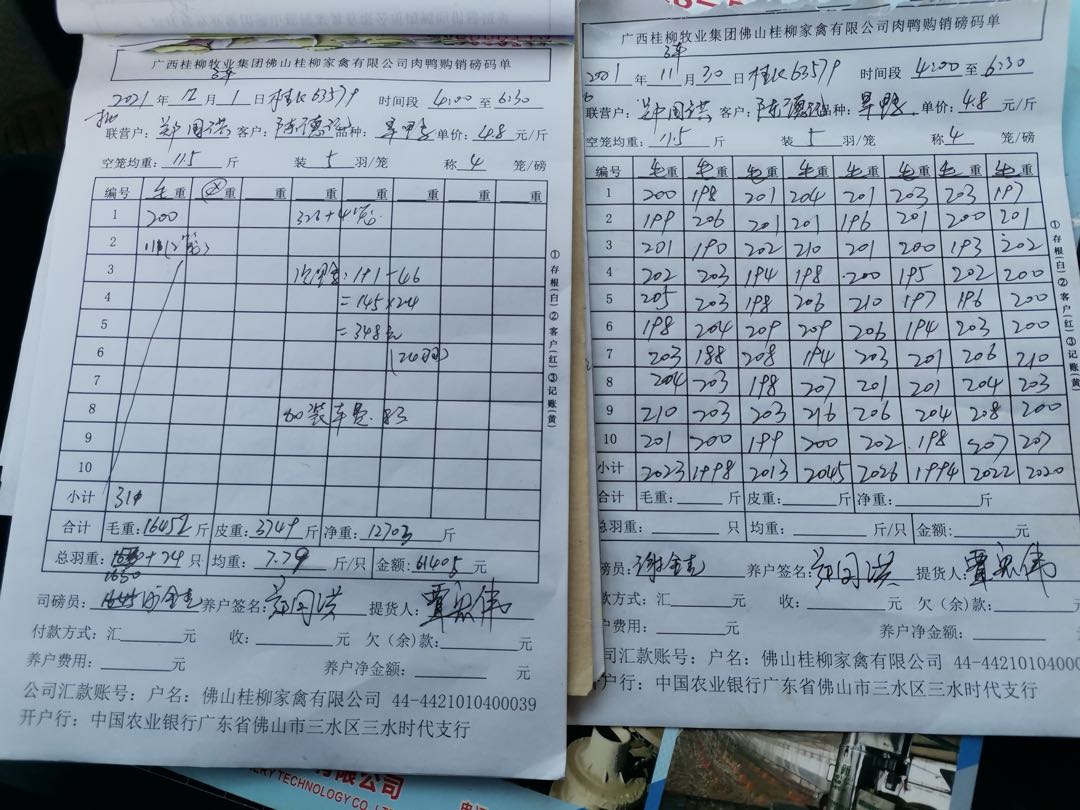 广西桂柳牧业集团佛山桂柳家禽有限公司肉鸭购销磅码单
2021年12月1日 桂K63579 时间段 4:00 至 6:30
联营户：郑国洪 客户：陈德 品种：单价：4.8元/斤
空笼均重：11.5斤 装5羽/笼 称4笼/磅
编号 毛重 重 重 重 重 重 重 重
1 200 326+4
2
3 191-46
4 =145×24
5 =348元
6
7
8 加装车费.83
9
10
小计
合计 毛重：16452斤 皮重：3749斤 净重：12703斤
总羽重：1630+24只 均重：7.79斤/只 金额：61405元
司磅员： 养户签名：郑国洪 提货人：覃宏伟
付款方式：汇 元 收： 元 欠（余）款： 元
养户费用： 元 养户净金额： 元
公司汇款账号：户名：佛山桂柳家禽有限公司 44-4421010400039
开户行：中国农业银行广东省佛山市三水区三水时代支行
①存根(白)②客户(红)③记账(黄)
广西桂柳牧业集团佛山桂柳家禽有限公司肉鸭购销磅码单
2001年11月30日 桂K63579 时间段 4:00 至 6:30
联营户：郑国洪 客户：陈德 品种：单价：4.8元/斤
空笼均重：11.5斤 装5羽/笼 称4笼/磅
编号 毛重 毛重 毛重 毛重 毛重 毛重 毛重 毛重
1 200 198 201 204 201 203 203 197
2 199 206 201 201 196 201 200 201
3 201 190 202 210 201 200 193 202
4 202 203 194 198 200 195 202 200
5 205 203 198 206 210 197 196 200
6 198 204 209 209 206 194 203 200
7 203 188 208 194 203 201 206 210
8 204 203 198 207 201 201 204 203
9 210 203 203 216 206 204 208 200
10 201 200 199 200 202 198 207 207
小计 2023 1998 2013 2045 2026 1994 2022 2020
合计 毛重： 斤 皮重： 斤 净重： 斤
总羽重： 只 均重： 斤/只 金额： 元
磅员：谢金 养户签名：郑国洪 提货人：覃宏伟
款方式：汇 元 收： 元 欠（余）款： 元
户费用： 元 养户净金额： 元
司汇款账号：户名：佛山桂柳家禽有限公司 44-44210104000
户行：中国农业银行广东省佛山市三水区三水时代支行
①存根(白)②客户(红)③记账(黄)
有限公司
ERY TECHNOLOGY CO., LT